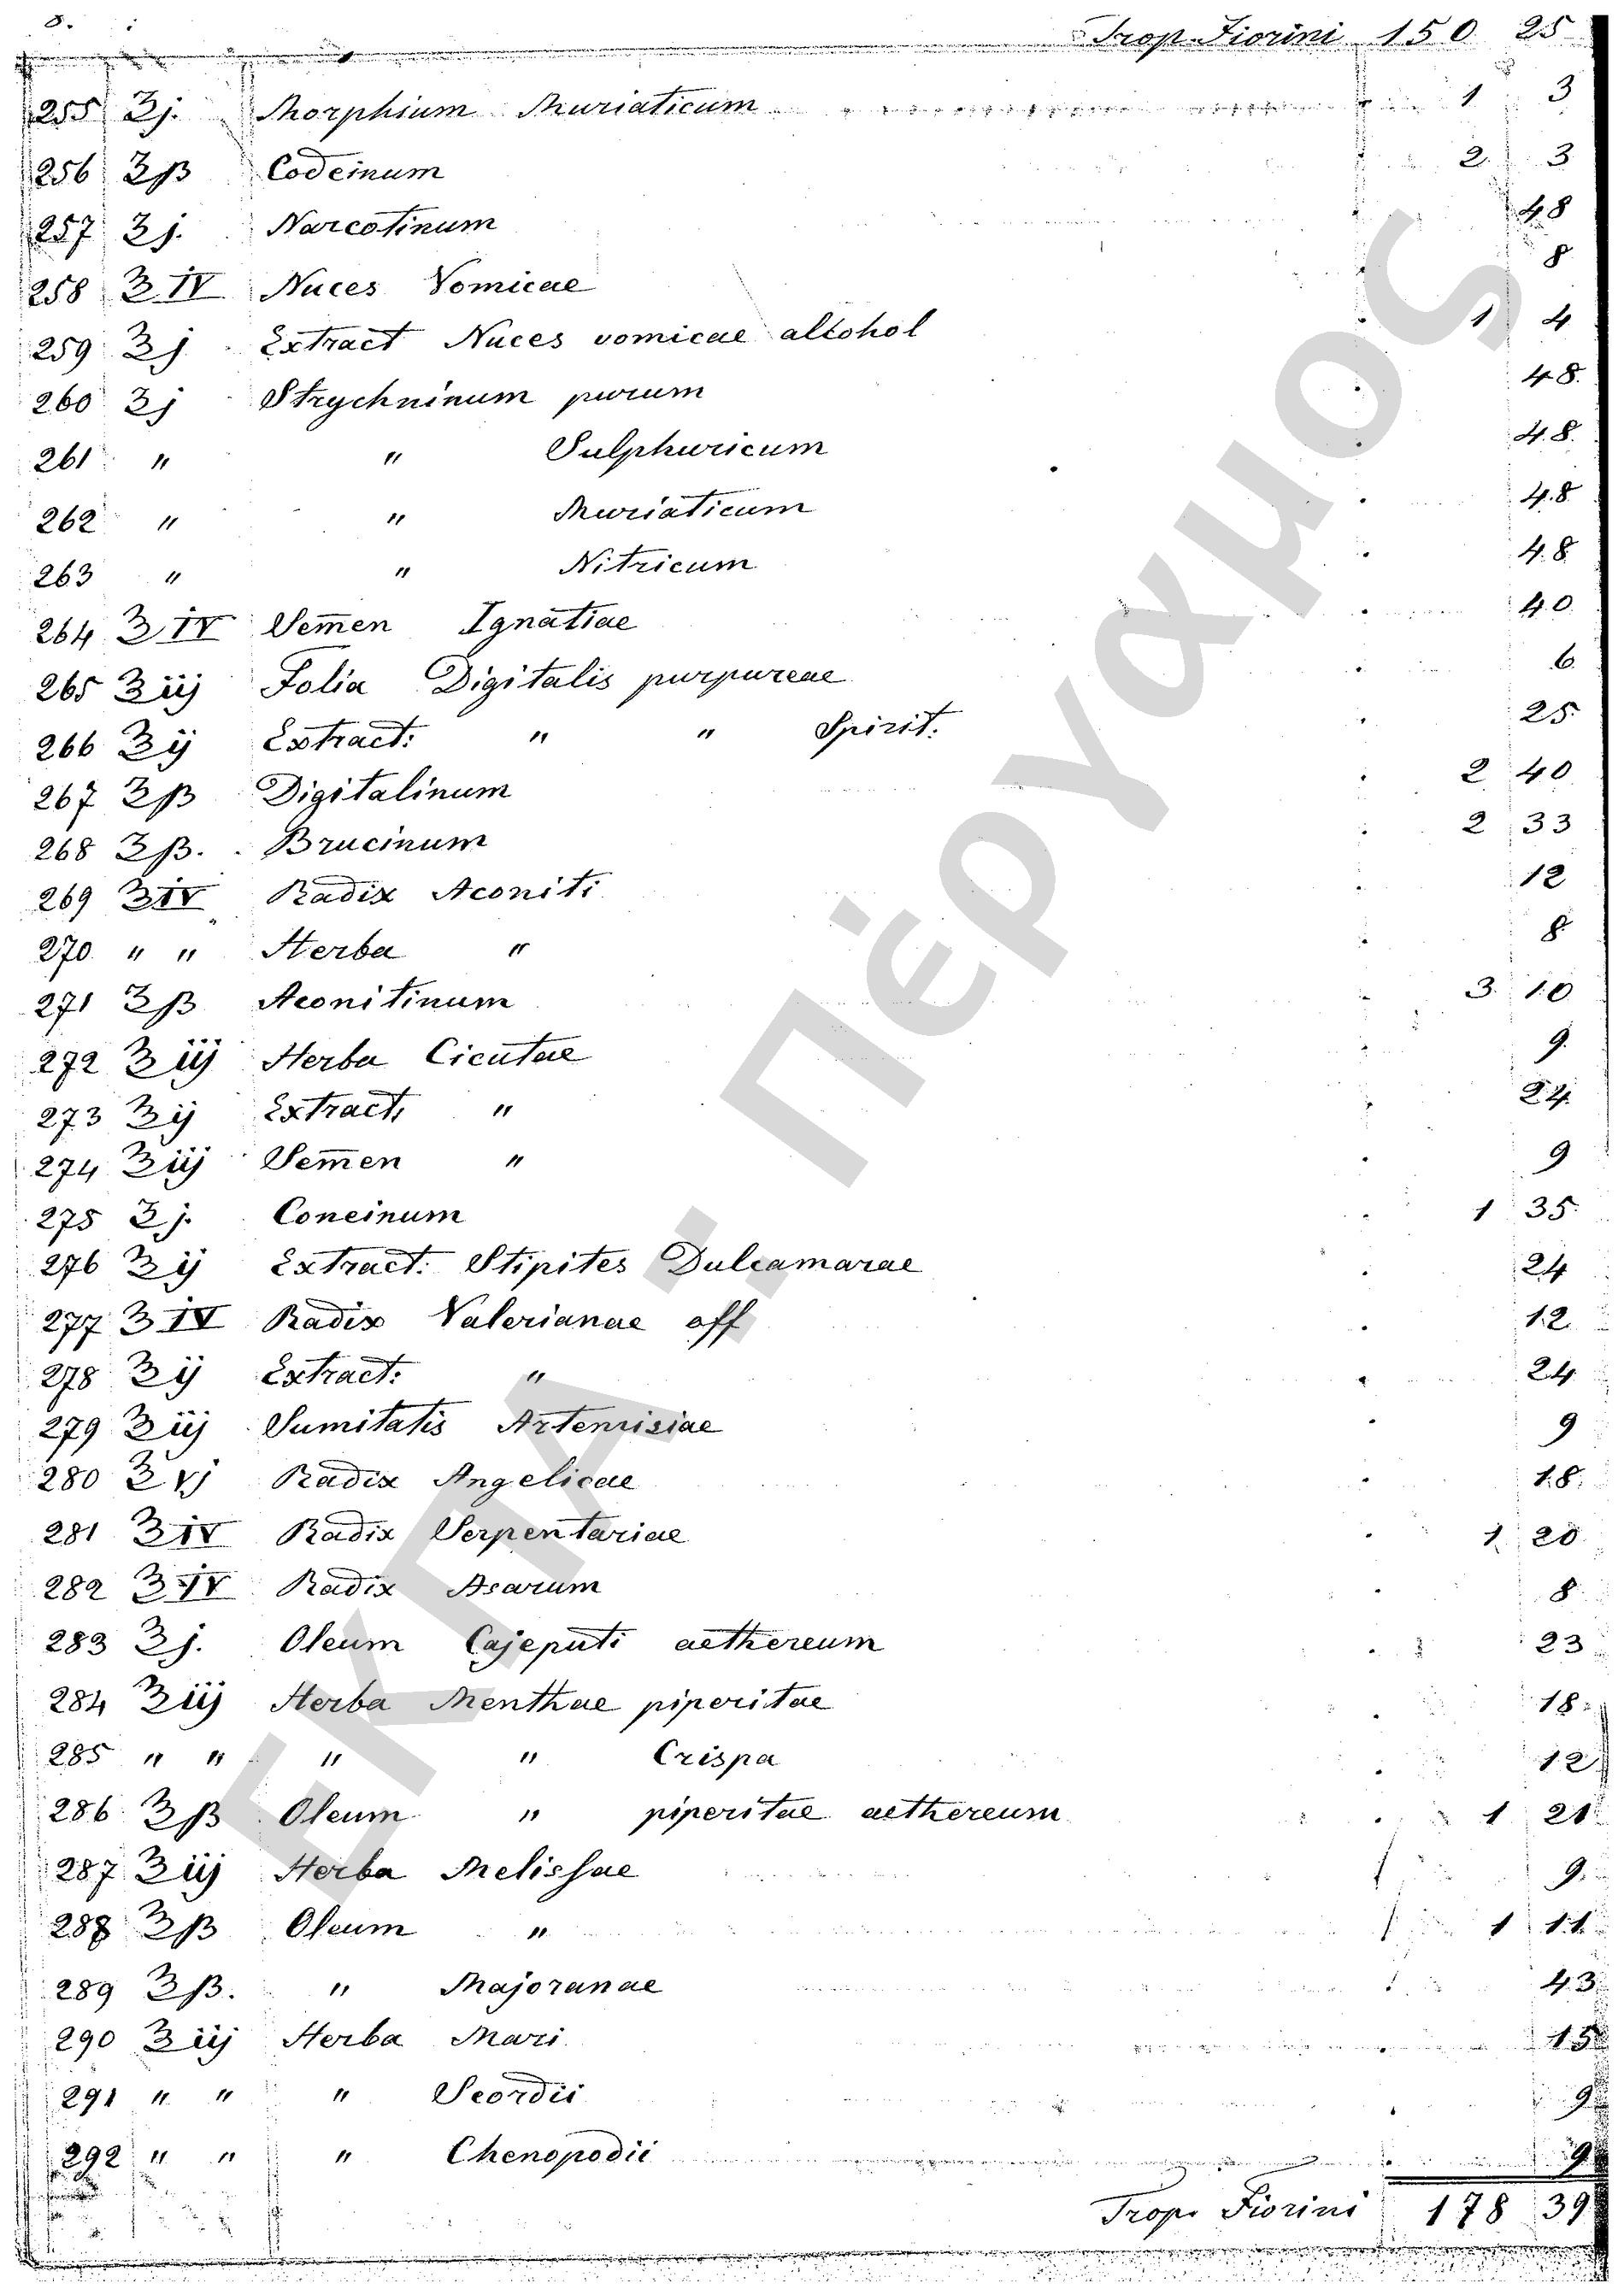 8.
Trop Fiorini 150 25
255 ʒj. Morphium Muriaticum 1 3
256 ʒβ Codeinum 2 3
257 ʒj. Narcotinum 48
258 ℥IV Nuces Vomicae 8
259 ʒj Extract Nuces vomicae alcohol 1 4
260 ʒj Strychninum purum 48.
261 " " Sulphuricum 48.
262 " " Muriaticum 48
263 " " Nitricum 48
264 ℥IV Sem̅en Ignatiae 40.
265 ℥iij Folia Digitalis purpureae 6.
266 ℥ij Extract: " " Spirit. 25.
267 ʒβ Digitalinum 2 40
268 ʒβ. Brucinum 2 33
269 ℥IV Radix Aconiti 12
270 " " Herba " 8
271 ʒβ Aconitinum 3 10
272 ℥iij Herba Cicutae 9.
273 ℥ij Extract. " 24.
274 ℥iij Sem̅en " 9
275 ʒj. Coneinum 1 35.
276 ℥ij Extract: Stipites Dulcamarae 24
277 ℥IV Radix Valerianae off 12.
278 ℥ij Extract: " 24.
279 ℥iij Sumitatis Artemisiae 9
280 ℥Vj Radix Angelicae 18.
281 ℥IV Radix Serpentariae 1 20
282 ℥IV Radix Asarum 8
283 ℥j. Oleum Cajeputi aethereum 23
284 ℥iij Herba Menthae piperitae 18
285 " " " " Crispa 12
286 ℥β Oleum " piperitae aethereum 1 21
287 ℥iij Herba Melissae 9.
288 ℥β Oleum " 1 11
289 ℥β. " Majoranae 43
290 ℥iij Herba Mari 15
291 " " " Scordii 9
292 " " " Chenopodii 9
Trop. Fiorini 178 39
ΕΚΠΑ - Πέργαμος